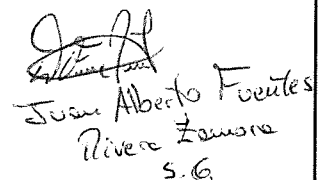 Juan Alberto Fuentes
Rivera Zamora
S.G.